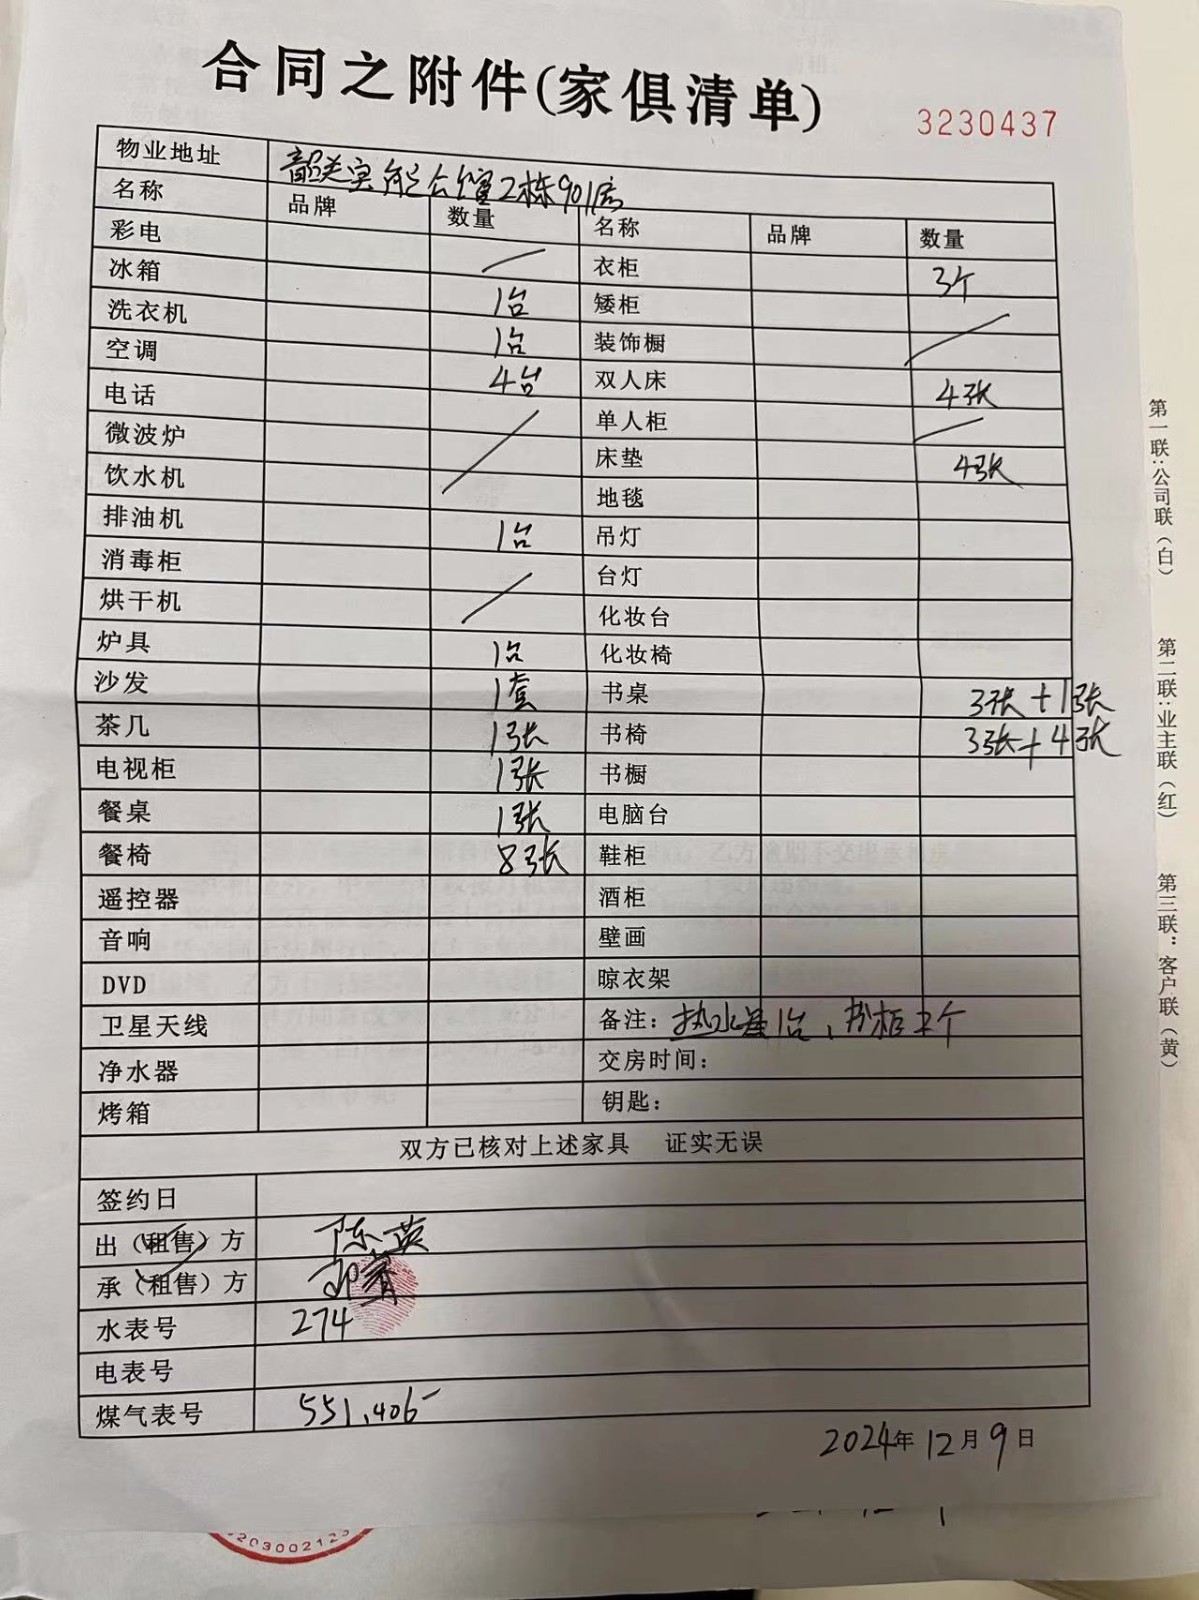 合同之附件(家俱清单)
3230437
物业地址 韶关实能公馆2栋901房
名称 品牌 数量 名称 品牌 数量
彩电 / 衣柜 3个
冰箱 1台 矮柜 /
洗衣机 1台 装饰橱
空调 4台 双人床 4张
电话 / 单人柜 /
微波炉 床垫 4张
饮水机 地毯
排油机 1台 吊灯
消毒柜 / 台灯
烘干机 化妆台
炉具 1台 化妆椅
沙发 1套 书桌 3张+1张
茶几 1张 书椅 3张+4张
电视柜 1张 书橱
餐桌 1张 电脑台
餐椅 8张 鞋柜
遥控器 酒柜
音响 壁画
DVD 晾衣架
卫星天线 备注：热水器1台，书柜2个
净水器 交房时间：
烤箱 钥匙：
双方已核对上述家具 证实无误
签约日
出（租售）方 陈英
承（租售）方
水表号 274
电表号
煤气表号 551,406
2024年12月9日
第一联：公司联（白） 第二联：业主联（红） 第三联：客户联（黄）